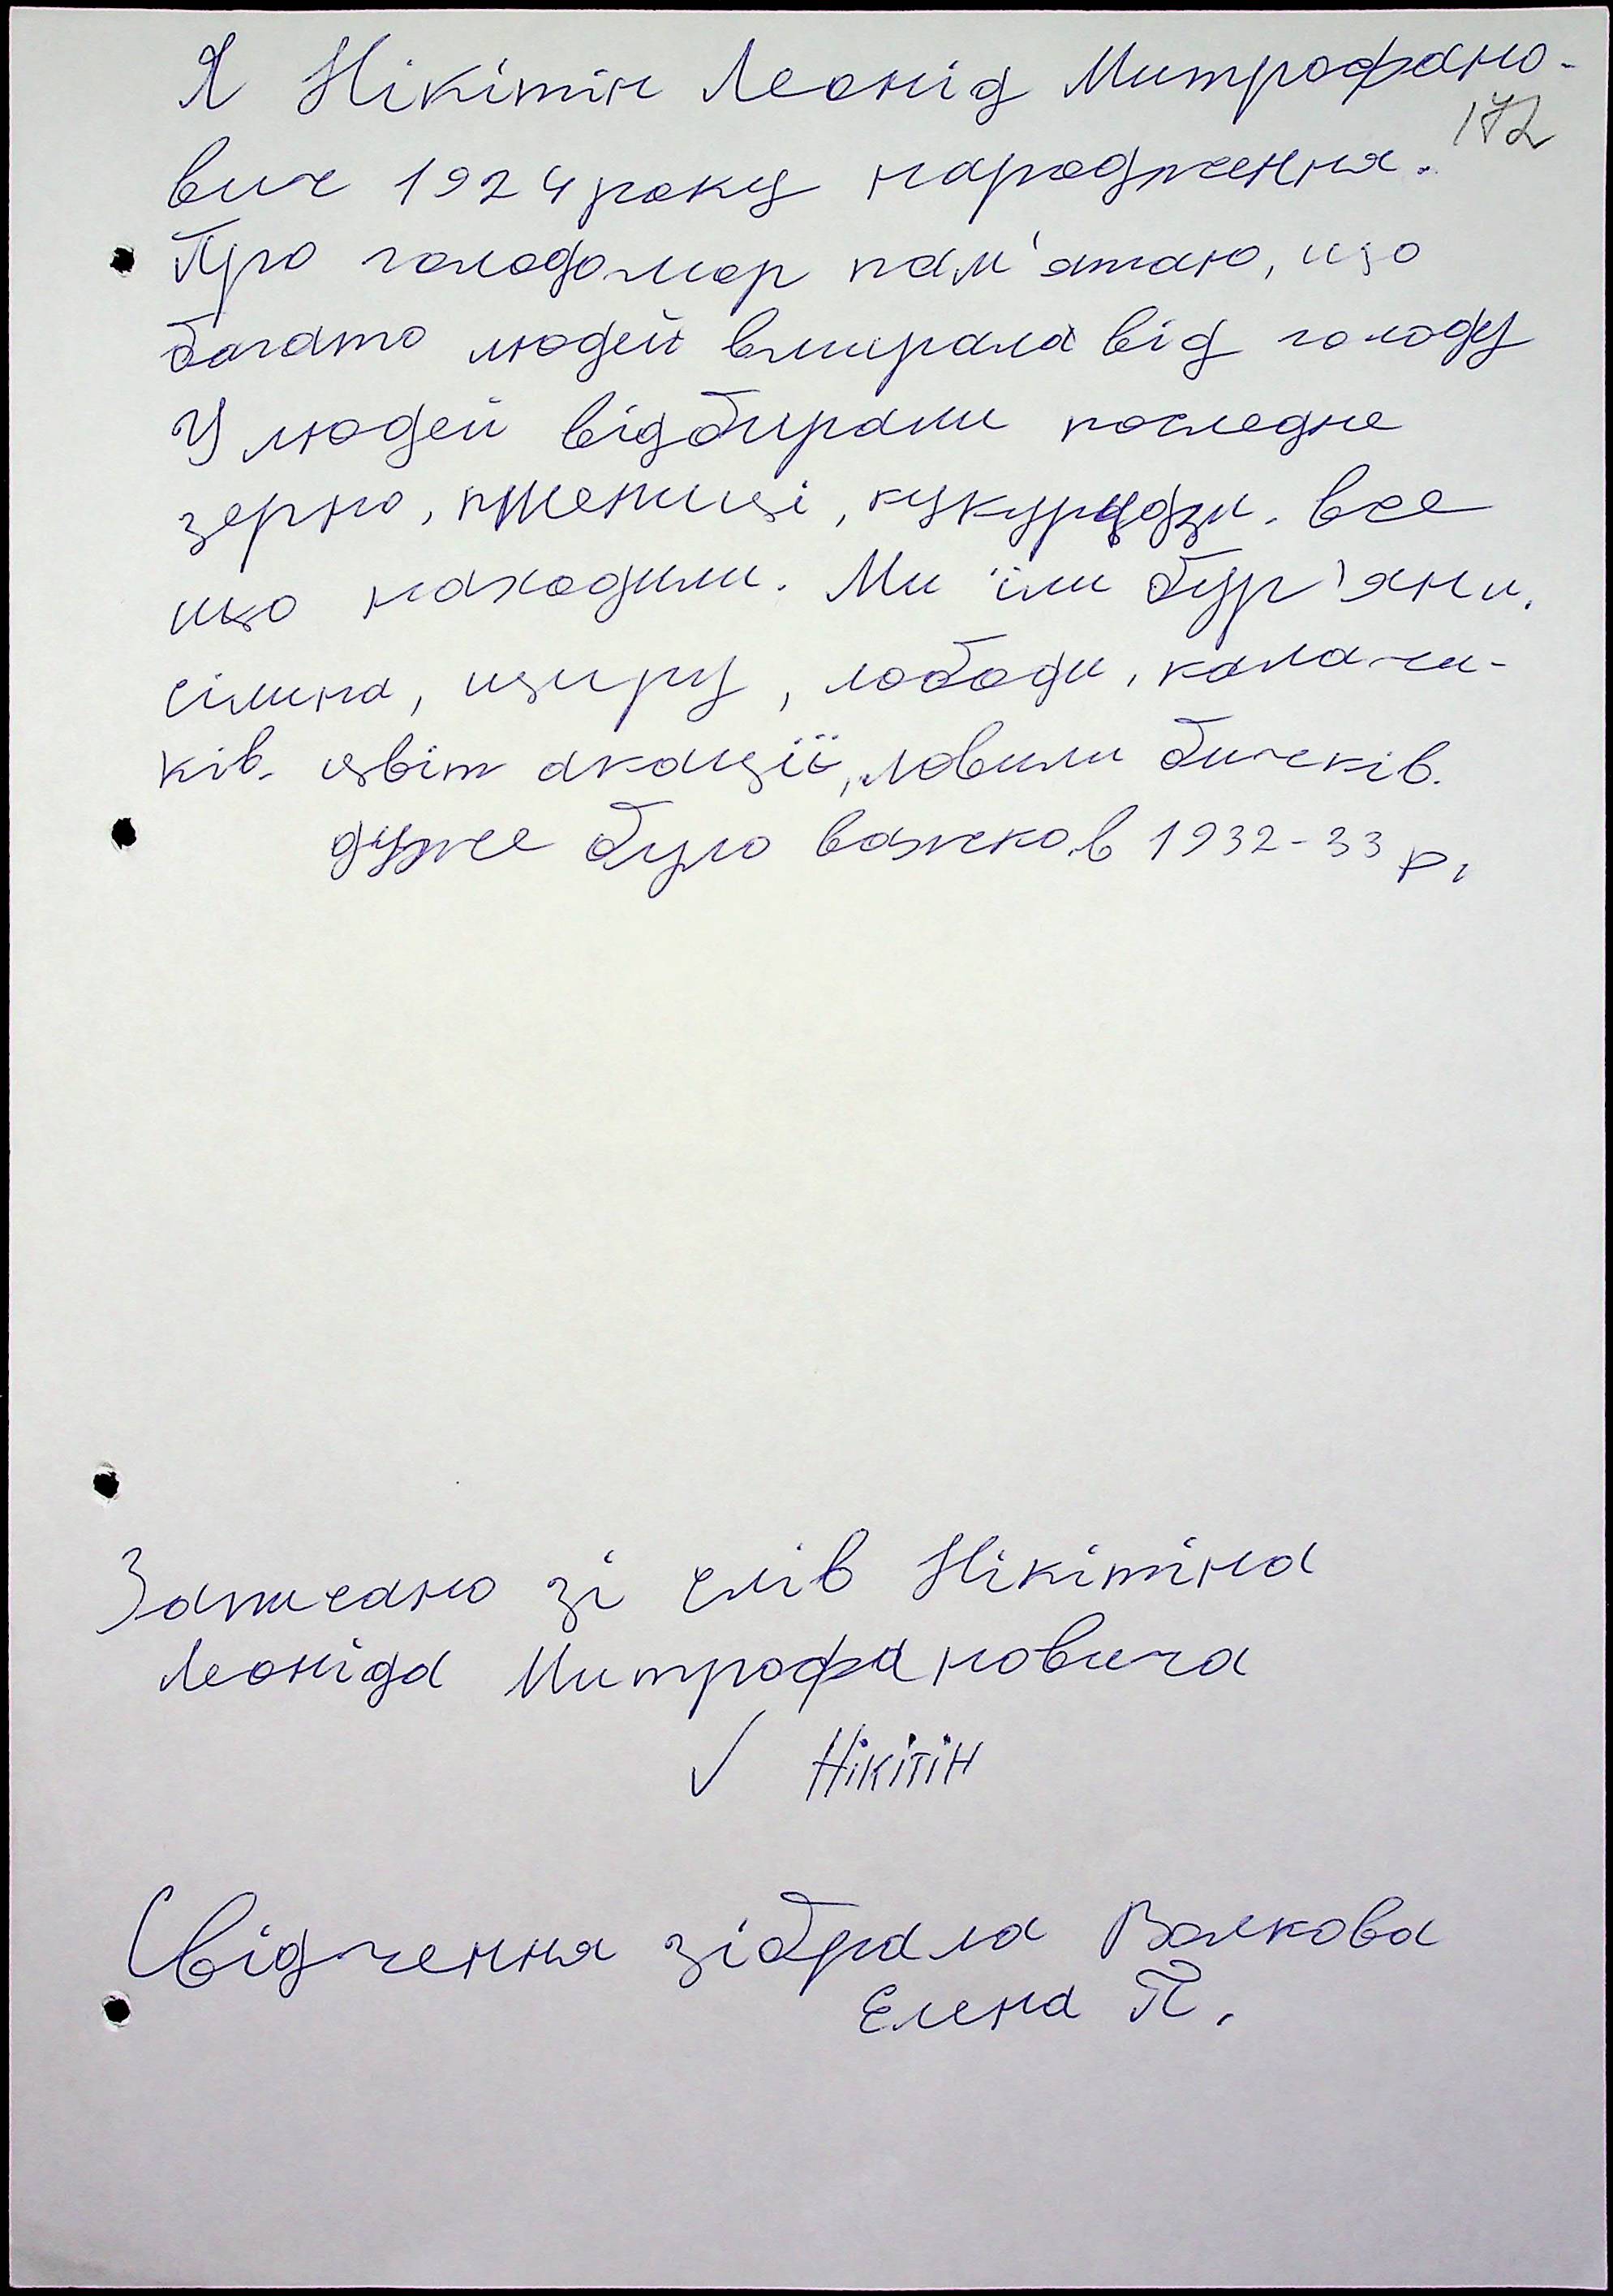 Я Нікітін Леонід Митрофано-
172
вич 1924 року народження.
Про голодомор пам'ятаю, що
багато людей вмирало від голоду
У людей відбирали последне
зерно, пшениці, кукурудзи. все
що находили. Ми їли бур'яни.
щиру, лободи, калачи-
ків. цвіт акації, ловили бичків.
дуже було важко в 1932-33 р.
Записано зі слів Нікітіна
Леоніда Митрофановича
✓ Нікітін
Свідчення зібрала Волкова
Елена П.